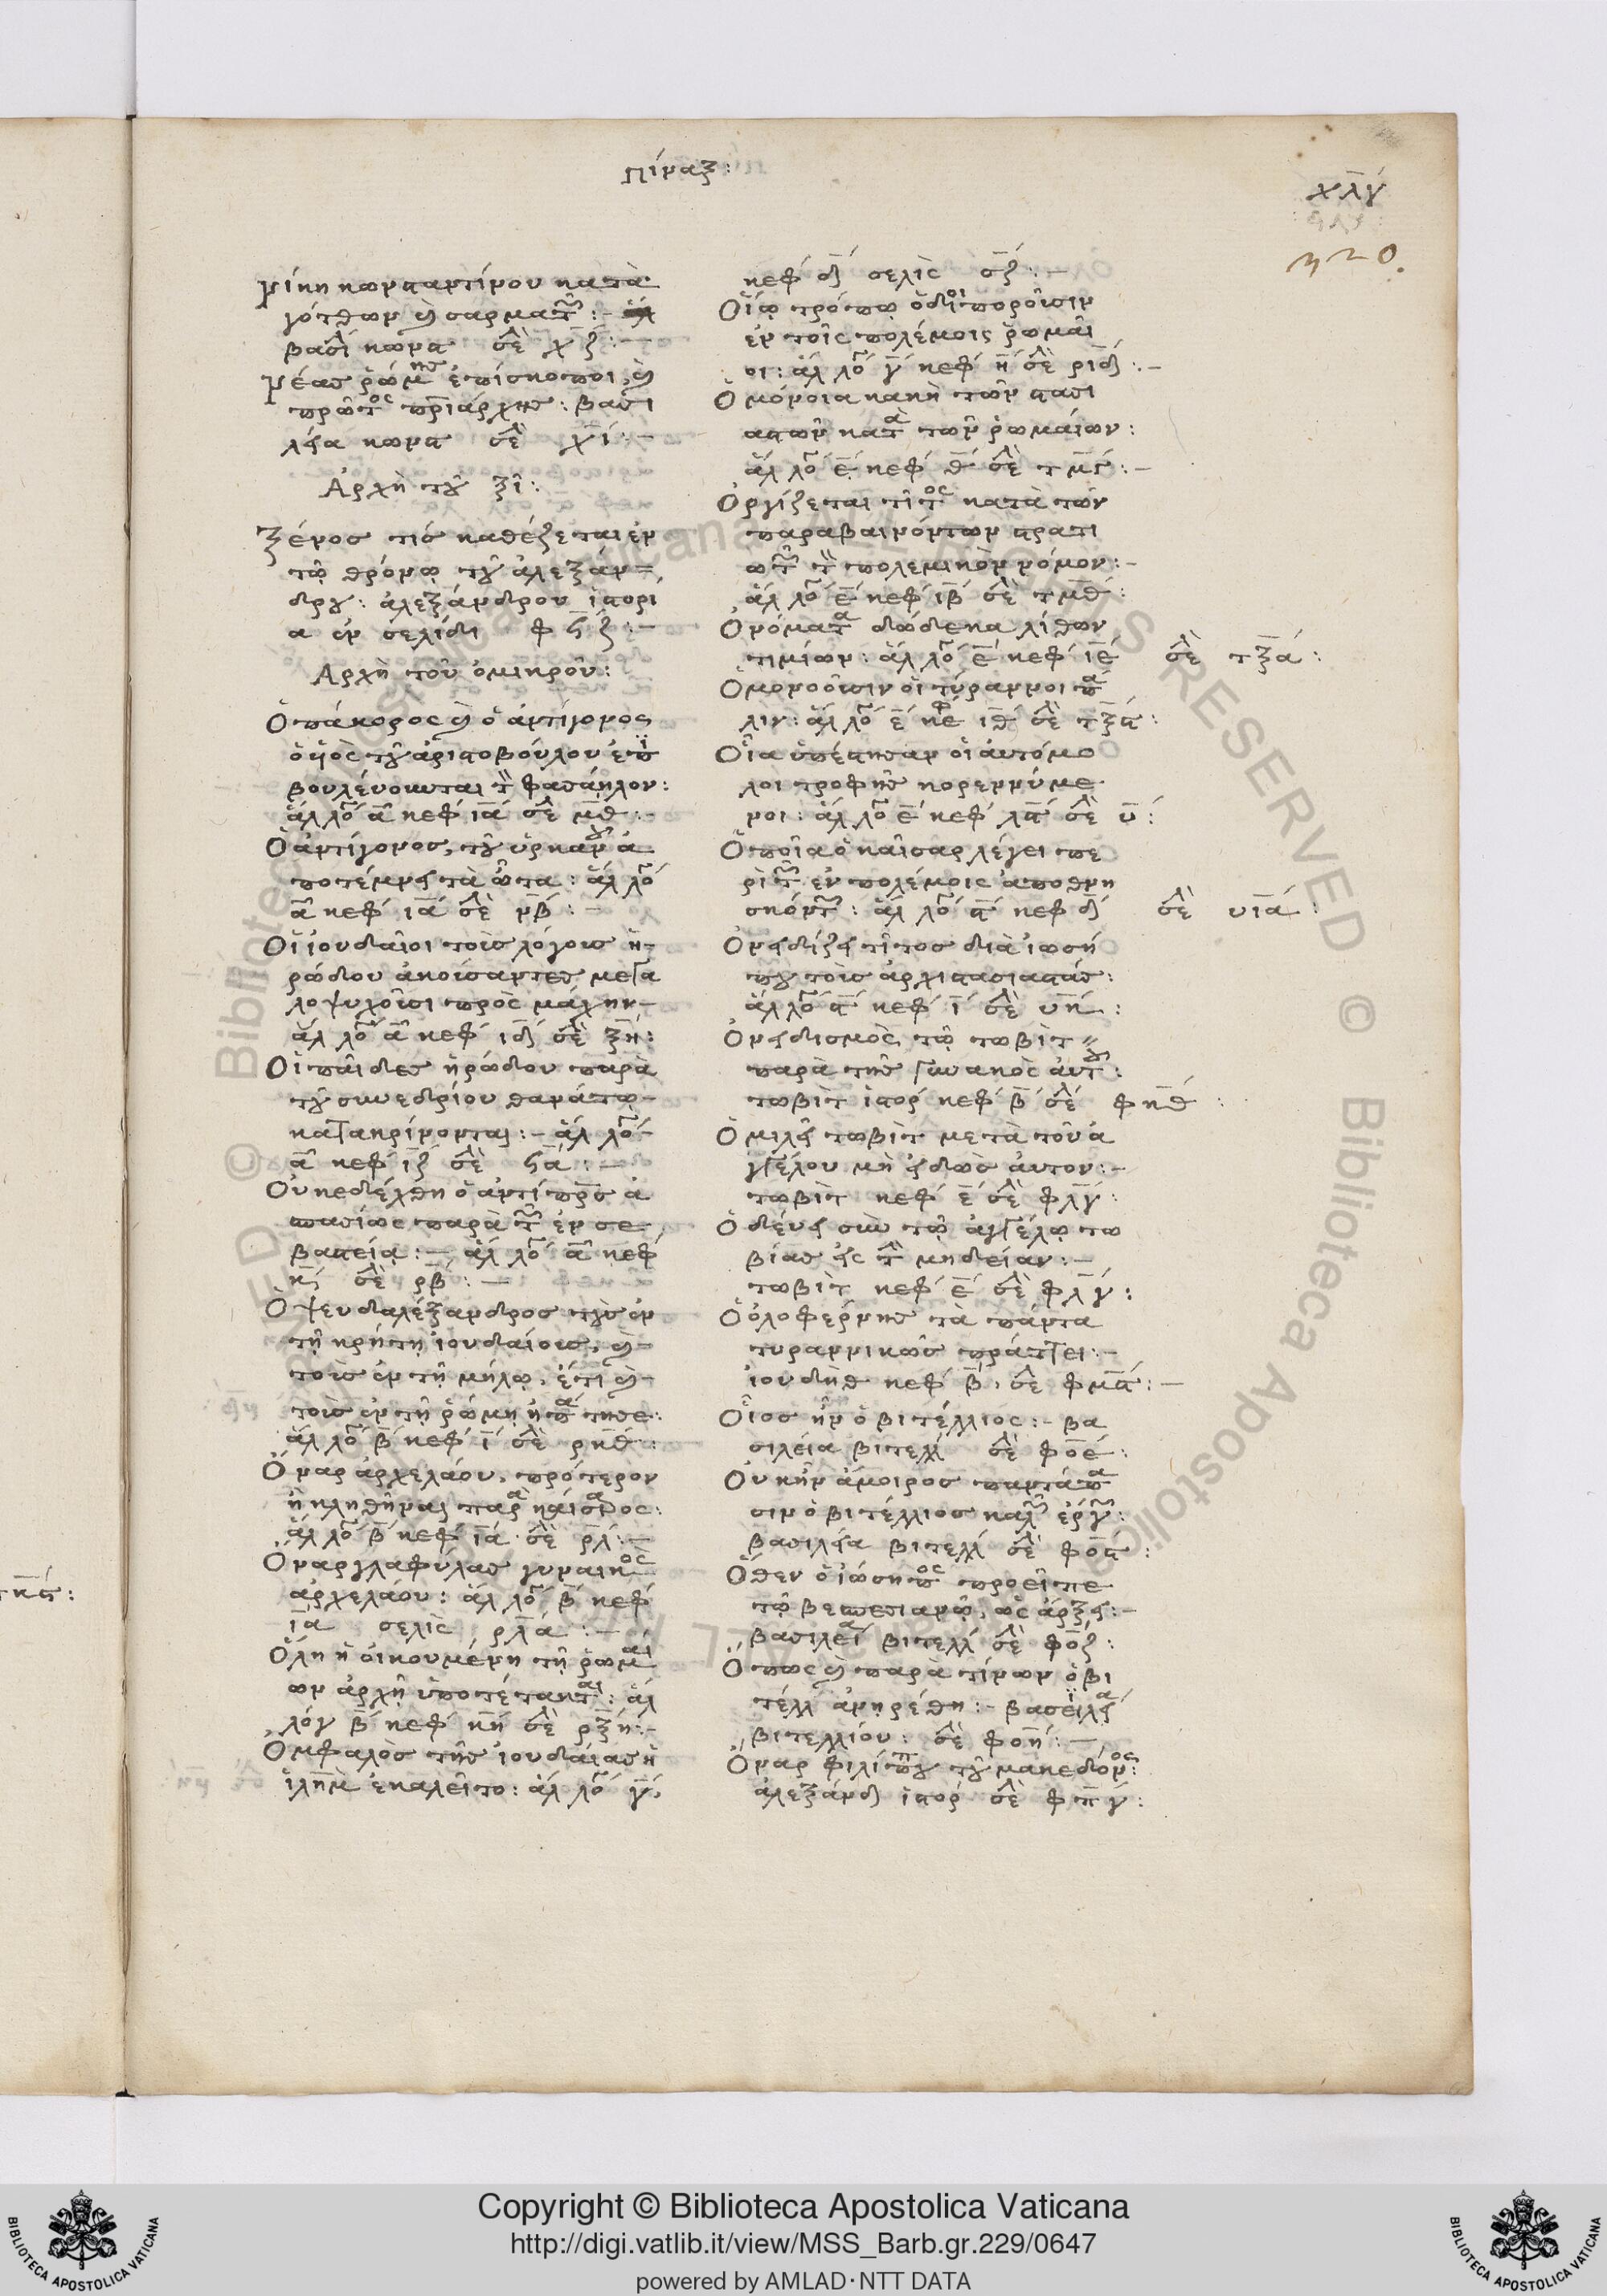 πίναξ:
χλγ
320.
νίκη κωνσταντίνου κατὰ
γότθων καὶ σαρματῶν:
βασί κωνσ σελ χζ:
νέας ῥώμης ἐπίσκοποι, καὶ
πρῶτος πριάρχης: βασι
λεία κωνστ σελ χι:
Ἀρχὴ τοῦ ξῖ:
Ξένος τις καθέζεται ἐν
τῷ θρόνῳ τοῦ ἀλεξάν=
δρου: ἀλεξάνδρου ἱστορι
α ἐν σελίδι φϟζ:
Ἀρχὴ τοῦ ὁμικροῦ:
Ὁ πάκορος καὶ ὁ ἀντίγονος
ὁ ὑιὸς τοῦ ἀριστοβούλου ἐπι
βουλεύουσται τὸν φασάηλον:
ἁλ λο α κεφ ια σελ μθ:
Ὁ ἀντίγονος, τοῦ ὑρκανοῦ ἀ
ποτέμνει τὰ ὦτα: ἁλ λο
α κεφ ια σελ νβ:
Οἱ ἰουδαῖοι τοῖς λόγοις ἡ-
ρώδου ἀκούσαντες μεγα
λοψυχοῦσι πρὸς μάχην-
ἁλ λο α κεφ ιδ σελ ξη:
Οἱ παῖδες ἡρώδου παρὰ
τοῦ συνεδρίου θανάτῳ-
κατακρίνονται: ἁλ λο
α κεφ ιζ σελ ϟα:
Οὐκ ἐδέχθη ὁ ἀντίπρος ἀ
σπασίως παρὰ τῶν ἐν σε
βαστεία: ἁλ λο α κεφ
κ σελ ρβ:
Ὁ ψευδαλέξανδρος τοὺς ἐν
τῇ κρήτῃ ἰουδαίους, καὶ-
τοὺς ἐν τῇ μήλῳ, ἔτι καὶ-
τοὺς ἐν τῇ ῥώμῃ ἠπάτησε:
ἁλ λο β κεφ ι σελ ρκθ:
Ὄναρ ἀρχελάου, πρότερον
ἢ κληθῆναι παρὰ καίσαρος:
ἁλ λο β κεφ ια σελ ρλ:
Ὄναρ γλαφύλας γυναικὸς
ἀρχελάου: ἁλ λο β κεφ
ια σελὶς ρλα:
Ὅλη ἡ οἰκουμένη τῇ ῥωμαί
ων ἀρχῇ ὑποτέτακται: ἁλ
λόγ β κεφ κη σελ ρξη:
Ὀμφαλὸς τῆς ἰουδαίας ἡ
ἱλημ ἐκαλεῖτο: ἁλ λο γ,
κεφ δ σελὶς σζ:
Οἵῳ τρόπῳ ὁδοιποροῦσιν
ἐν τοῖς πολέμοις ῥωμαῖ
οι: ἁλ λο γ κεφ η σελ ριδ:
Ὁμόνοια κακὴ τῶν στασι
αστῶν κατὰ τῶν ῥωμαίων:
ἁλ λο ε κεφ θ σελ τμγ:
Ὀργίζεται τίτος κατὰ τῶν
παραβαινόντων στρατι
ωτῶν τὸν πολεμικὸν νόμον:
ἁλ λο ε κεφ ιβ σελ τμθ:
Ὀνόματα δώδεκα λίθων
τιμίων: ἁλ λο ε κεφ ιε σελ τξα:
Ὁμονοοῦσιν οἱ τύραννοι πά
λιν: ἁλ λο ε κεφ ιθ σελ τξϛ:
Οἷα ὑπέστησαν οἱ ἀυτόμο
λοι τροφῆς κορεννύμε
νοι: ἁλ λο ε κεφ λϛ σελ υ:
Ὁποῖα ὁ καῖσαρ λέγει πε
ρὶ τῶν ἐν πολέμοις ἀποθνη
σκόντων: ἁλ λο ϛ κεφ δ σελ υια:
Ὀνειδίζει τίτος διὰ ἰωσή
που τοὺς ἀρχιστασιαστάς:
ἁλ λο ϛ κεφ ι σελ υκη:
Ὀνειδισμὸς τῷ τωβὶτ
παρὰ τῆς γυναικὸς ἀυτοῦ:
τωβὶτ ἱστορ κεφ β σελ φκθ:
Ὁμιλεῖ τωβὶτ μετὰ τοῦ ἀ
γγέλου μὴ εἰδὼς ἀυτον:
τωβὶτ κεφ ε σελ φλγ:
Ὁδεύει σὺν τῷ ἀγγέλῳ τω
βίας εἰς τὴν μηδείαν:
τωβὶτ κεφ ε σελ φλγ:
Ὁ ὀλοφέρνης τὰ πάντα
τυραννικῶς πράττει:
ἰουδὴθ κεφ β, σελ φμϛ:
Οἷος ἦν ὁ βιτέλλιος: βα
σιλεία βιτελλ σελ φοε:
Οὐκ ἦν ἄμοιρος παντάπα
σιν ὁ βιτέλλιος καλῶν ἔργων:
βασιλεία βιτελλ σελ φοϛ:
Ὅθεν ὁ ἰώσηπος προεῖπε
τῷ βεσπεσιανῷ, ὡς ἄρξει:
βασιλεία βιτελλ σελ φοζ:
Ὅπως καὶ παρὰ τίνων ὁ βι
τέλλ ἀνηρέθη: βασιλεία
βιτελλίου: σελ φοη:
Ὄναρ φιλίππου τοῦ μακεδόνος:
ἀλεξάνδ ἱστορ σελ φπγ:
Copyright © Biblioteca Apostolica Vaticana
http://digi.vatlib.it/view/MSS_Barb.gr.229/0647
powered by AMLAD·NTT DATA
BIBLIOTECA APOSTOLICA VATICANA
BIBLIOTECA APOSTOLICA VATICANA